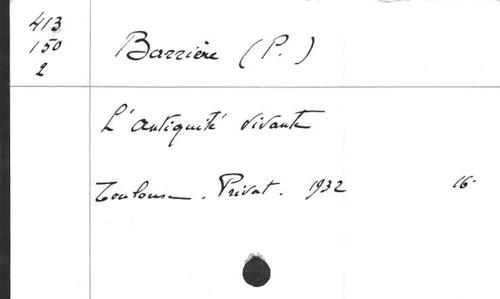 413
150
2
Barrière (P.)
L'antiquité vivante
Toulouse. Privat. 1932 16°